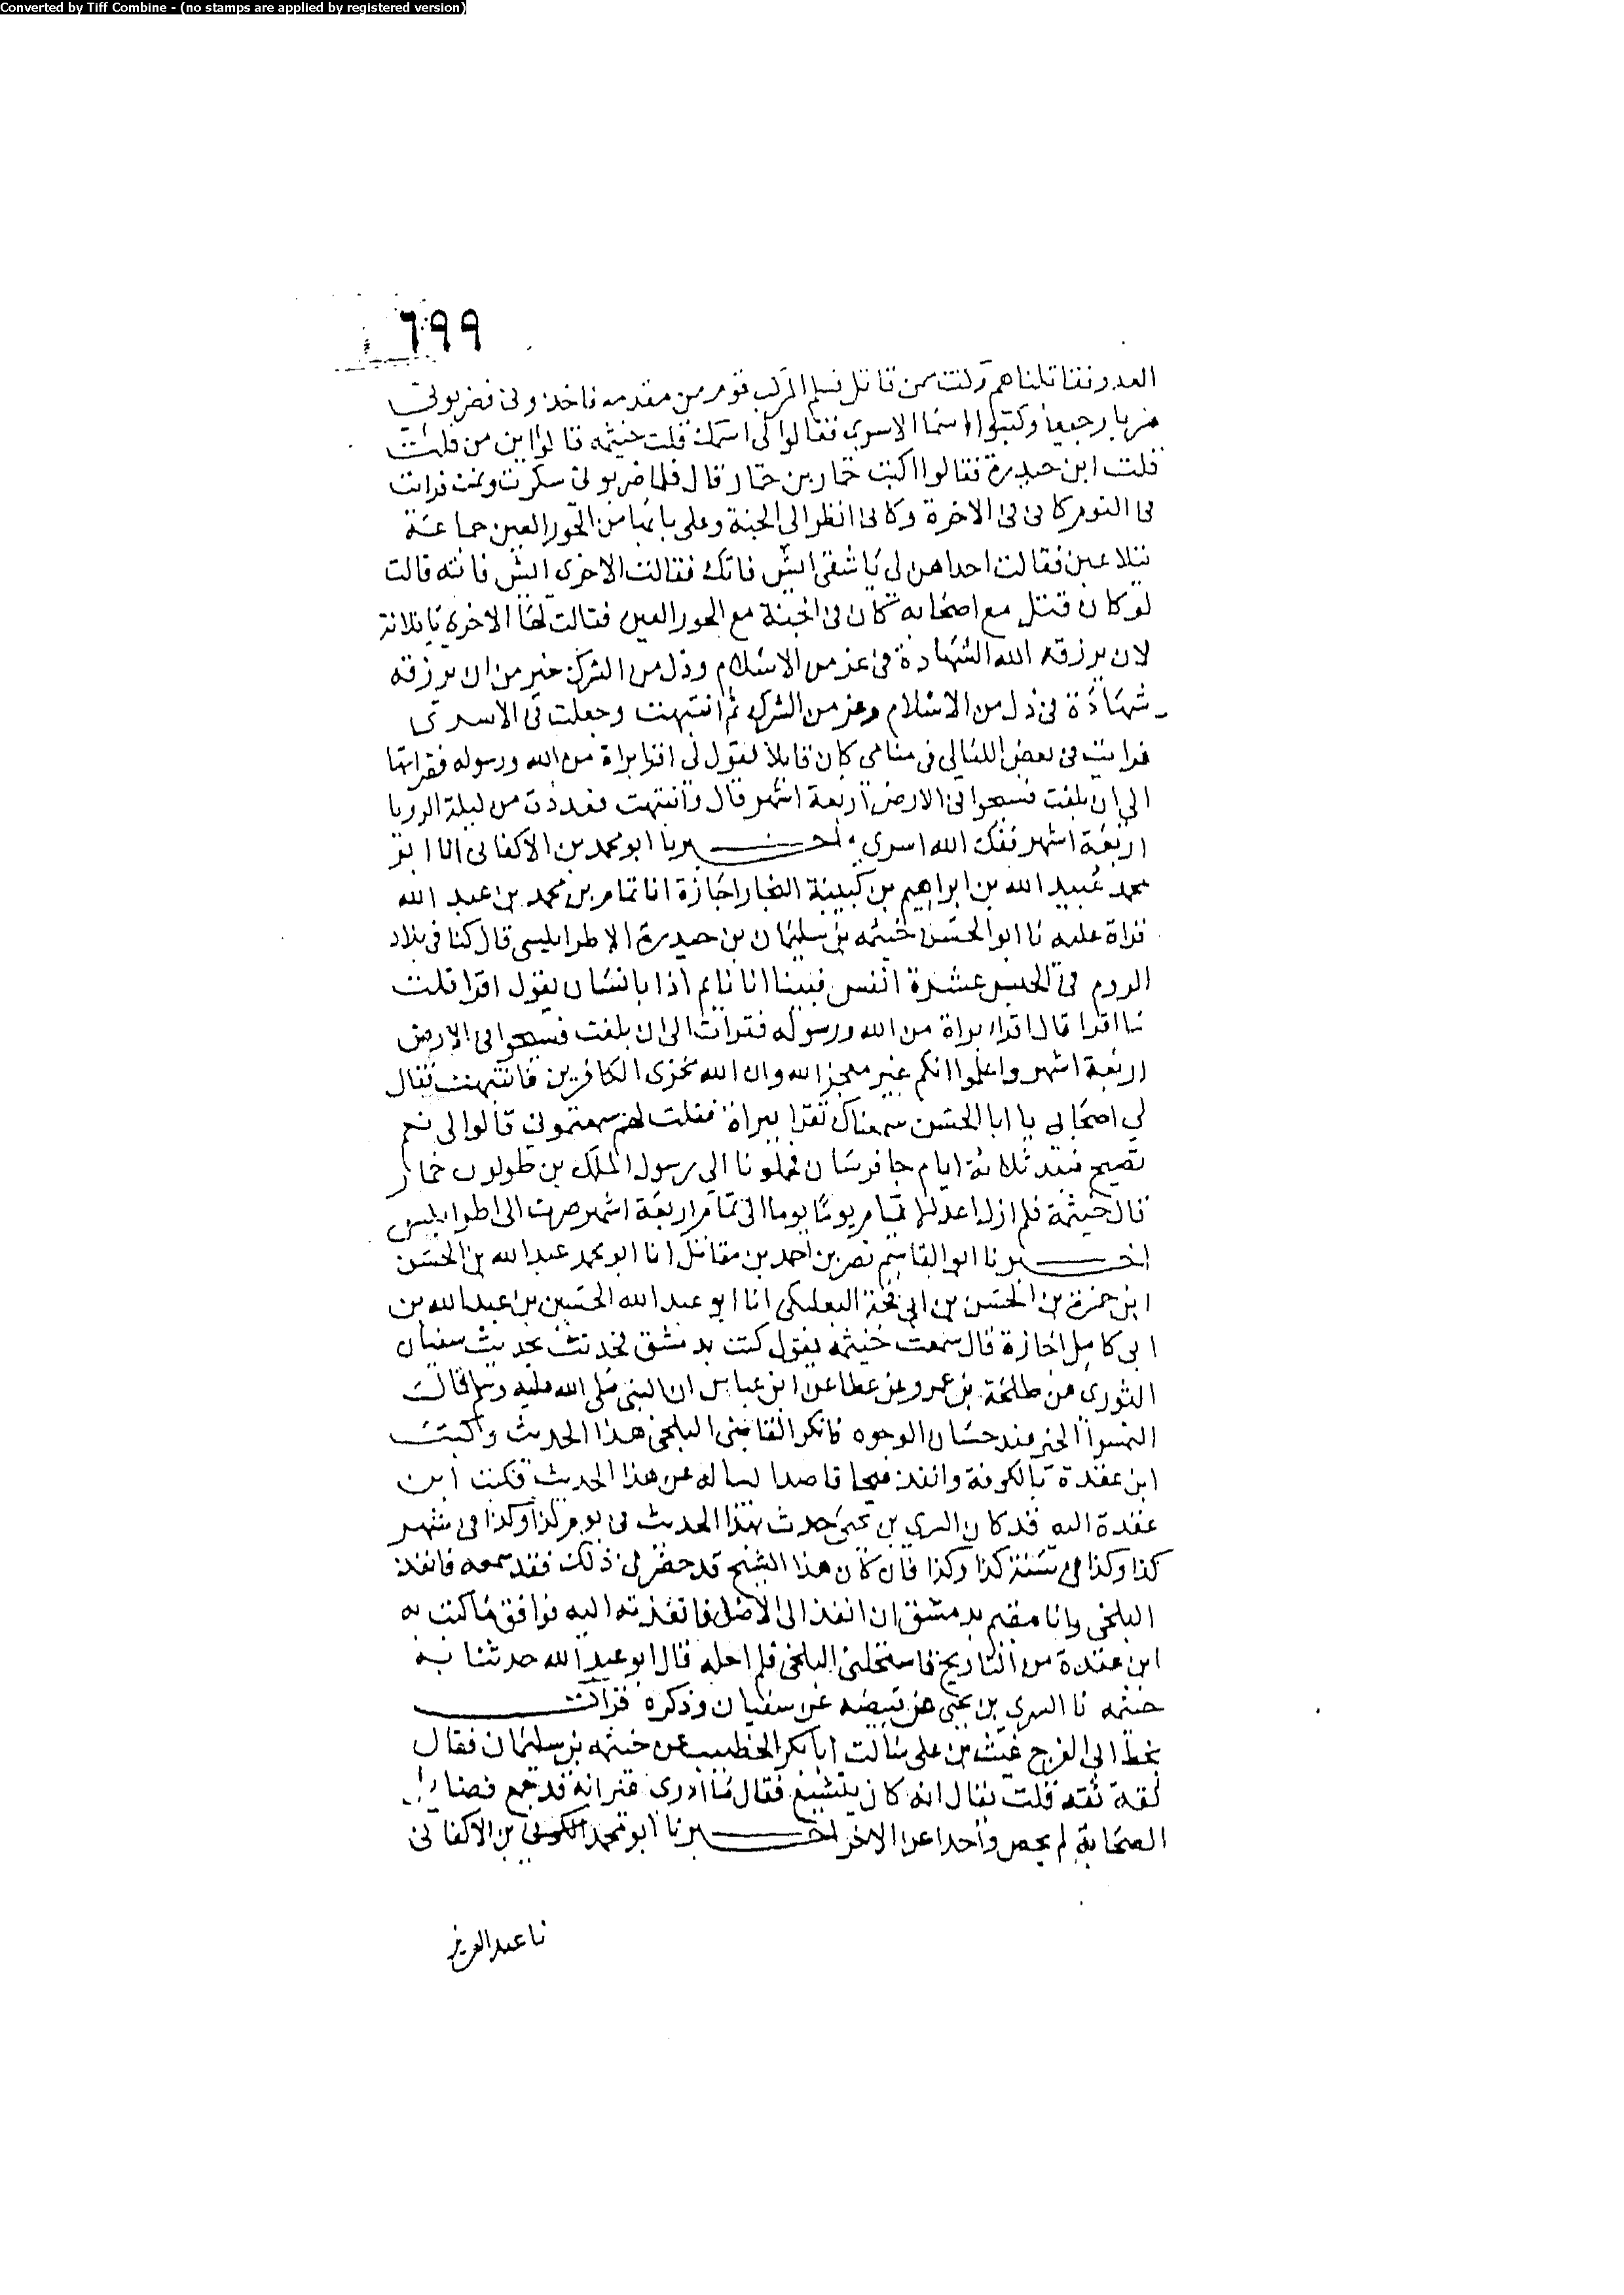 Converted by Tiff Combine - (no stamps are applied by registered version)
٦٩٩
العدو فقاتلناهم وكنت ممن قاتل فسلم المركب قوم من مقدمه فاخذوني فضربوني
ضربا وجيعا وكتبوا اسما الاسرى فقالوا لى اسمك قلت خيثمة قالوا ابن من قلت
قلت ابن حيدرة فقالوا اكتب حمار بن حمار قال فلما ضربوني سكرت ونمت فرايت
فى النوم كانى فى الاخرة وكانى انظر الى الجنة وعلى بابها من الحور العين جماعة
يتلاعبن فقالت احداهن لى يا شقى ايش فاتك فقالت الاخرى ايش فاته قالت
لو كان قتل مع اصحابه كان فى الجنة مع الحور العين فقالت لها الاخرى يا فلانة
لان يرزقه الله الشهادة فى عز من الاسلام وذل من الشرك خير من ان يرزقه
شهادة فى ذل من الاسلام وعز من الشرك ثم انتبهت وجعلت فى الاسرى
فرايت فى بعض الليالى فى منامى كان قايلا يقول لى اقرا براة من الله ورسوله فقراتها
الى ان بلغت فسيحوا فى الارض اربعة اشهر قال وانتبهت فعددت من ليلة الرويا
اربعة اشهر ففك الله اسرى اخبرنا ابو محمد بن الاكفانى انا ابو
محمد عبيد الله بن ابراهيم بن كبيبة النجار اجازة انا تمام بن محمد بن عبد الله
قراة عليه نا ابو الحسن خيثمه بن سليمان بن حيدرة الاطرابلسى قال كنا فى بلاد
الروم فى الحبس عشرة انفس فبينا انا نايم اذا بانسان يقول اقرا قلت
ما اقرا قال اقرا براة من الله ورسوله فقرات الى ان بلغت فسيحوا فى الارض
اربعة اشهر واعلموا انكم غير معجز الله وان الله مخزى الكافرين فانتبهت فقال
لى اصحابى يا ابا الحسن سمعناك تقرا ببراة فقلت لهم سمعتمونى قالوا لى نعم
تصيح فبعد ثلاثة ايام جا فرسان فحملونا الى رسول الملك بن طولون خمار
قال خيثمة فلم ازل اعد لها تمام يوما يوما الى تمام اربعة اشهر صرت الى اطرابلس
اخبرنا ابو القاسم نصر بن احمد بن مقاتل انا ابو محمد عبد الله بن الحسن
ابن حمزة بن الحسن بن ابى فجة البعلبكى انا ابو عبد الله الحسين بن عبد الله بن
ابى كامل اجازة قال سمعت خيثمه يقول كنت بدمشق فحدثت بحديث سفيان
الثورى عن طلحة بن عمرو عن عطا عن ابن عباس ان النبى صلى الله عليه وسلم قال
التمسوا الخير عند حسان الوجوه فانكر القاضى البلخى هذا الحديث وكتب
ابن عقدة بالكوفة وانفذ فيجا قاصدا يساله عن هذا الحديث فكتب ابن
عقدة اليه قد كان السرى بن يحيى حدث بهذا الحديث فى يوم كذا وكذا فى شهر
كذا وكذا فى سنة كذا وكذا فان كان هذا الشيخ قد حضر فى ذلك فقد سمعه فانفذ
البلخى وانا مقيم بدمشق ان انفذ الى الاصل فانفذته اليه فوافق ما كتب به
ابن عقدة من التاريخ فاستحلنى البلخى فلم احله قال ابو عبد الله حدثنا به
خيثمه نا السرى بن يحيى عن قبيصه عن سفيان وذكره قرات
بخط ابى الفرج غيث بن على سالت ابا بكر الخطيب عن خيثمه بن سليمان فقال
ثقة ثقه قلت يقال انه كان يتشيع فقال ما ادرى غير انه قد جمع فضايل
الصحابة لم يخص واحدا عن الاخر اخبرنا ابو محمد بن الاكفانى
نا عبد العزيز